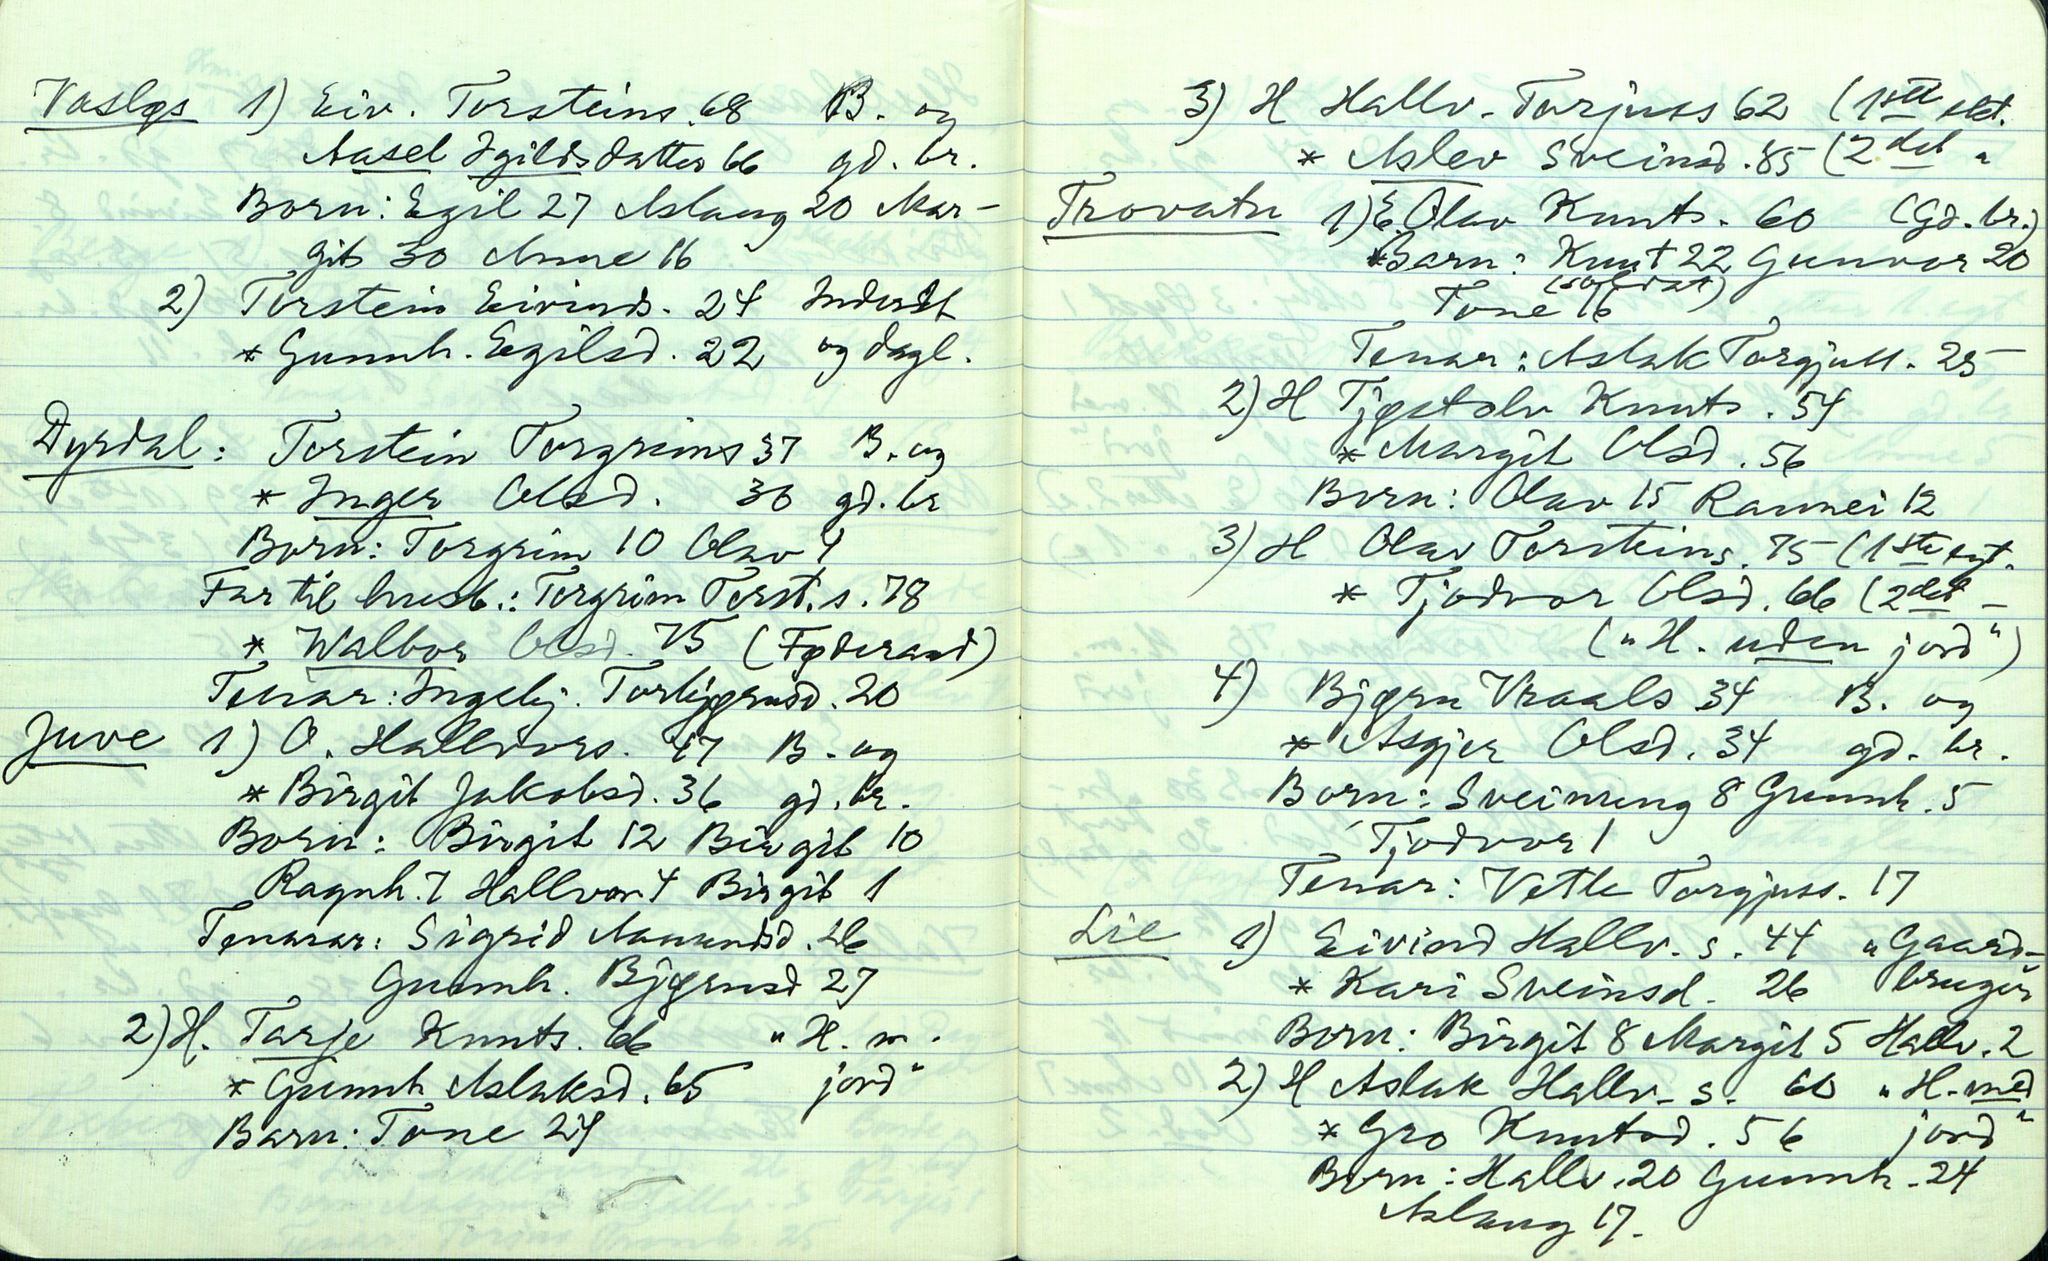 Vasløs 1) Eiv. Torsteins. 68 B. og
Aasel Igilds datter 66 gd. br.
Born: Egil 27 Aslaug 20 Mar-
git 30 Anne 16
2) Torstein Eivinds. 24 Inderst
* Gunnh. Egilsd. 22 og dagl.
Dyrdal: Torstein Torgrims 37 B. og
* Inger Olsd. 36 gd. br
Born: Torgrim 10 Olav 4
Far til husb.: Torgrim Torst. s. 78
* Walbor Olsd. 75 (Føderaad)
Tenar: Ingebj. Torbjørnsd. 20
Juve 1) O. Hallvors. 47 B. og
* Birgit Jakobsd. 36 gd. br.
Born: Birgit 12 Birgit 10
Ragnh. 7 Hallvor 4 Birgit 1
Tenarar: Sigrid Aamundsd. 26
Gunnh. Bjørnsd 27
2) H. Tarje Knuts. 66 "H. m.
* Gunnh Aslaksd. 65 jord"
Barn: Tone 24
3) H Hallv. Tarjuss 62 (1ste ekt.
* Aslev Sveinsd. 85 (2det "
Trovatn 1) E. Olav Knuts. 60 (Gd. br.)
* Barn: Knut 22 Gunvor 20
(soldat)
Tone 16
Tenar: Aslak Torgjuss. 25
2) H Tjøstolv Knuts. 54
* Margit Olsd. 56
Born: Olav 15 Rannei 12
3) H Olav Torsteins. 75 (1ste egt.
* Tjodvor Olsd. 66 (2det -
("H. uden jord")
4) Bjørn Vraals 34 B. og
* Asgjer Olsd. 34 gd. br.
Born: Sveinung 8 Gunnh. 5
Tjodvor 1
Tenar: Vetle Torgjuss. 17
Lie 1) Eivind Hallv. s. 44 "Gaard-
* Kari Sveinsd. 26 bruger
Born: Birgit 8 Margit 5 Hallv. 2
2) H Aslak Hallv. s. 60 "H. med
* Gro Knutsd. 56 jord"
Born: Hallv. 20 Gunnh. 24
Aslaug 17.